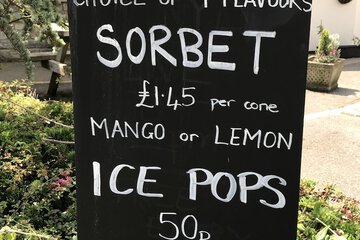 CHOICE OF 4 FLAVOURS
SORBET
£1.45 per cone
MANGO or LEMON
ICE POPS
50p